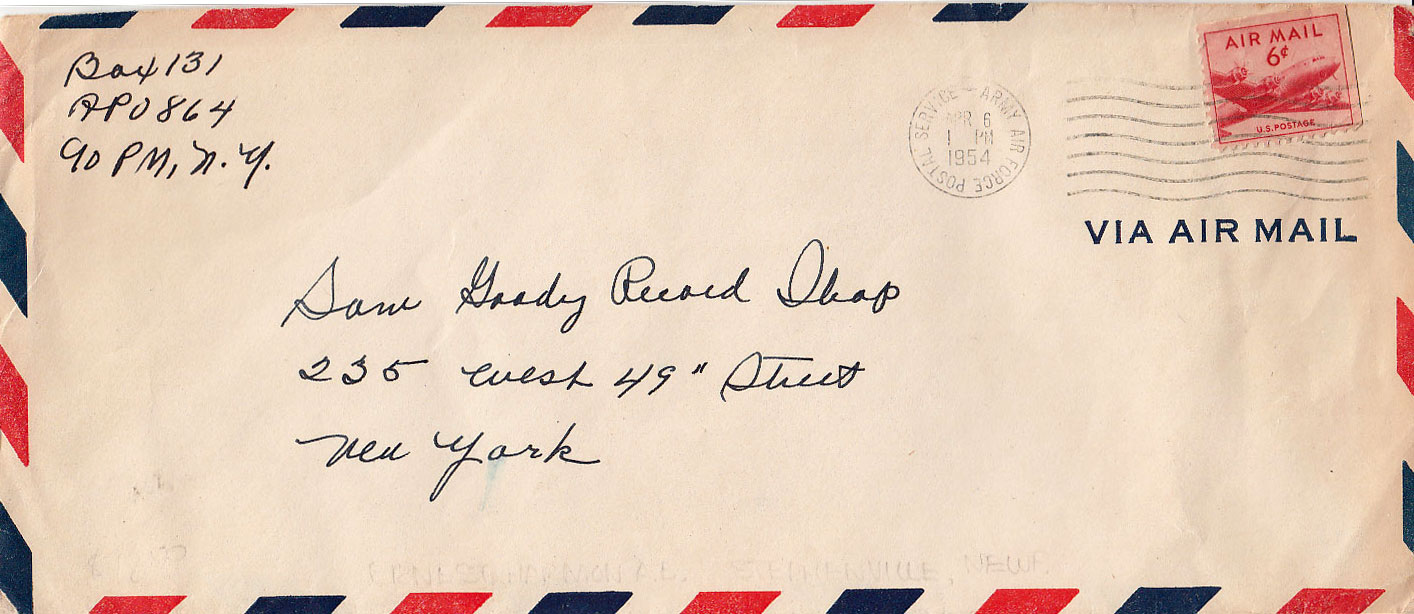 Box 131
APO 864
90 PM, N.Y.
AIR MAIL
6¢
U.S. POSTAGE
ARMY AIR FORCE POSTAL SERVICE
APR 6
1 PM
1954
VIA AIR MAIL
Sam Goody Record Shop
235 West 49" Street
New York